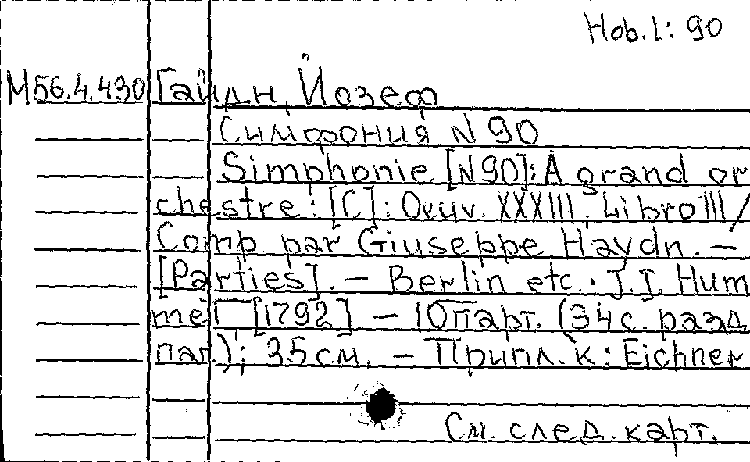 Hob.I: 90
М56.4.430 Гайдн, Йозеф
Симфония N 90
Simphonie [N90]: A grand or
chestre: [C]: Ouuv. XXXIII, Libro III /
Comp par Giuseppe Haydn. —
[Parties]. — Berlin etc.: J.J. Hum
mel [1792] — 10 парт. (34 с. разд.
паг.); 35 см. — Припл. к: Eichner
См. след. карт.